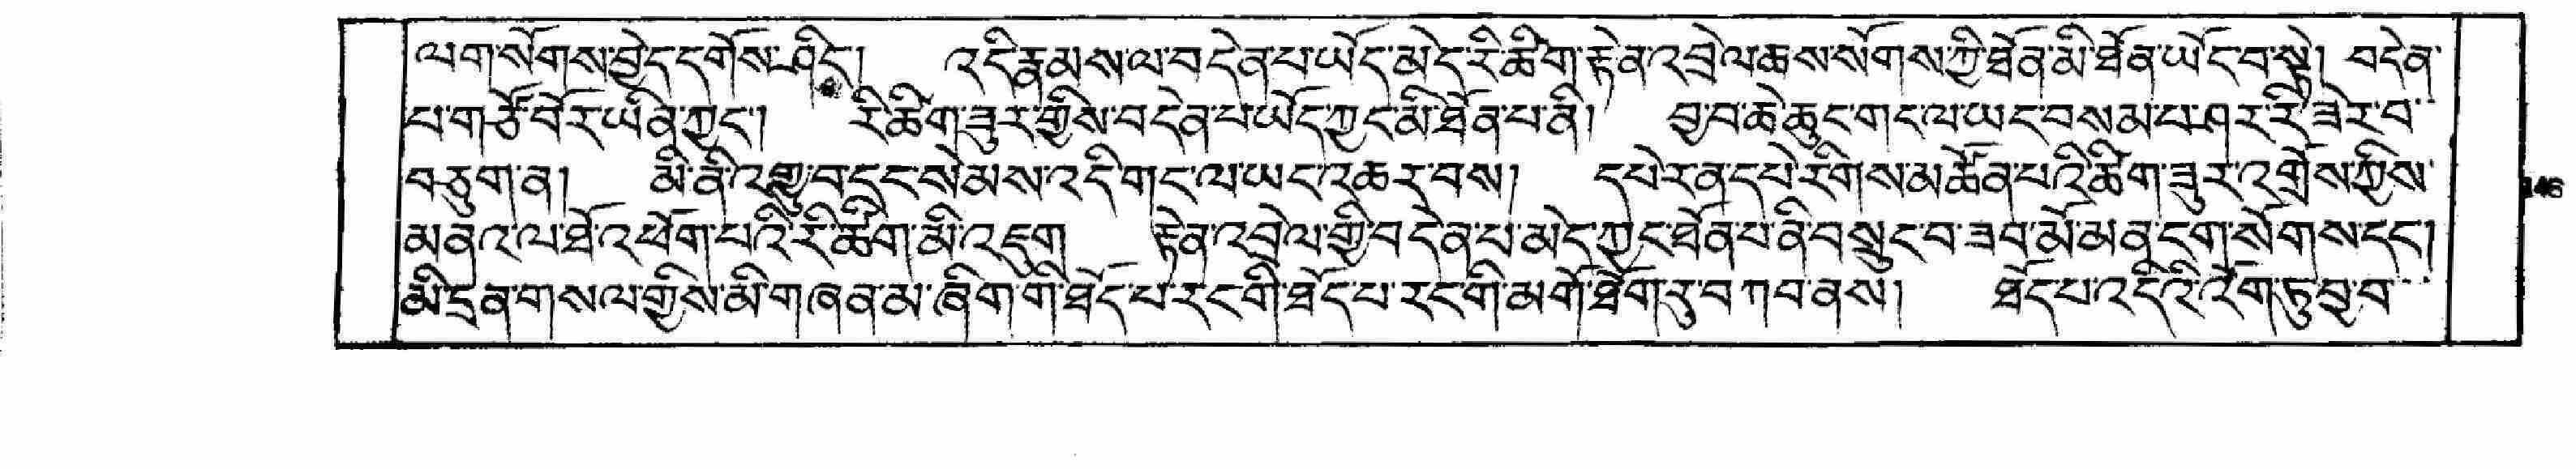 ལག་སོགས་བྱེད་དགོས་ཤིང་།    འདི་རྣམས་ལ་བདེན་པ་ཡོད་མེད་རི་ཚིག་རྟེན་འབྲེལ་ཆས་སོགས་ཀྱི་ཐོན་མི་ཐོན་ཡོང་བ་སྟེ། བདེན་
པ་གཙོ་བོར་ཡིན་ཀྱང་།    རི་ཚིག་ཟུར་གྱིས་བདེན་པ་ཡོད་ཀྱང་མི་ཐོན་པ་ནི།    བྱ་བ་ཆེ་ཆུང་གང་ལ་ཡང་བསམ་པ་ཤར་རི་ཟེར་བ་
བཅུག་ན།    མི་ནི་འགྱུ་བ་དྲང་སེམས་འདི་གང་ལ་ཡང་འཆར་བས།    དཔེར་ན་དཔེ་རིགས་མཚོན་པའི་ཚིག་ཟུར་འགྲོས་ཀྱིས་
མནའ་ལ་ཐོ་འཕོག་པའི་རི་ཚིག་མི་འཇུག    རྟེན་འབྲེལ་གྱི་བདེན་པ་མེད་ཀྱང་ཐོན་པ་ནི་བསྲུང་བ་ཟབ་མོ་མན་ངག་སོགས་དང་།
མི་དྲན་གསལ་གྱིས་མི་གཞན་མ་ཞིག་གི་ཐོད་པ་རང་གི་ཐོད་པ་རང་གི་མགོ་ཐོག་ཏུ་བཀབ་ནས།    ཐོད་པ་འདིའི་འོག་ཏུ་བྱ་བ་
146